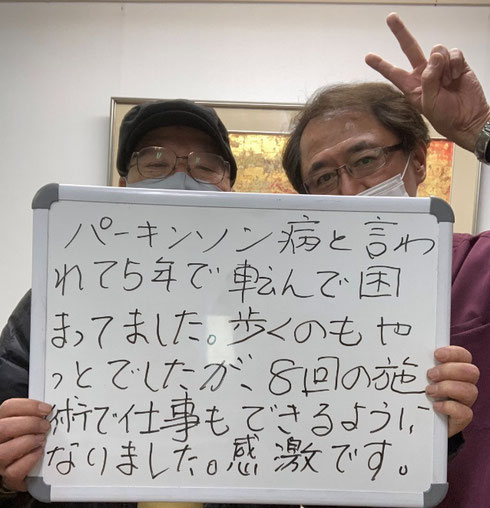 パーキンソン病と言わ
れて5年で転んで困
まってました。歩くのもや
っとでしたが、8回の施
術で仕事もできるように
なりました。感激です。